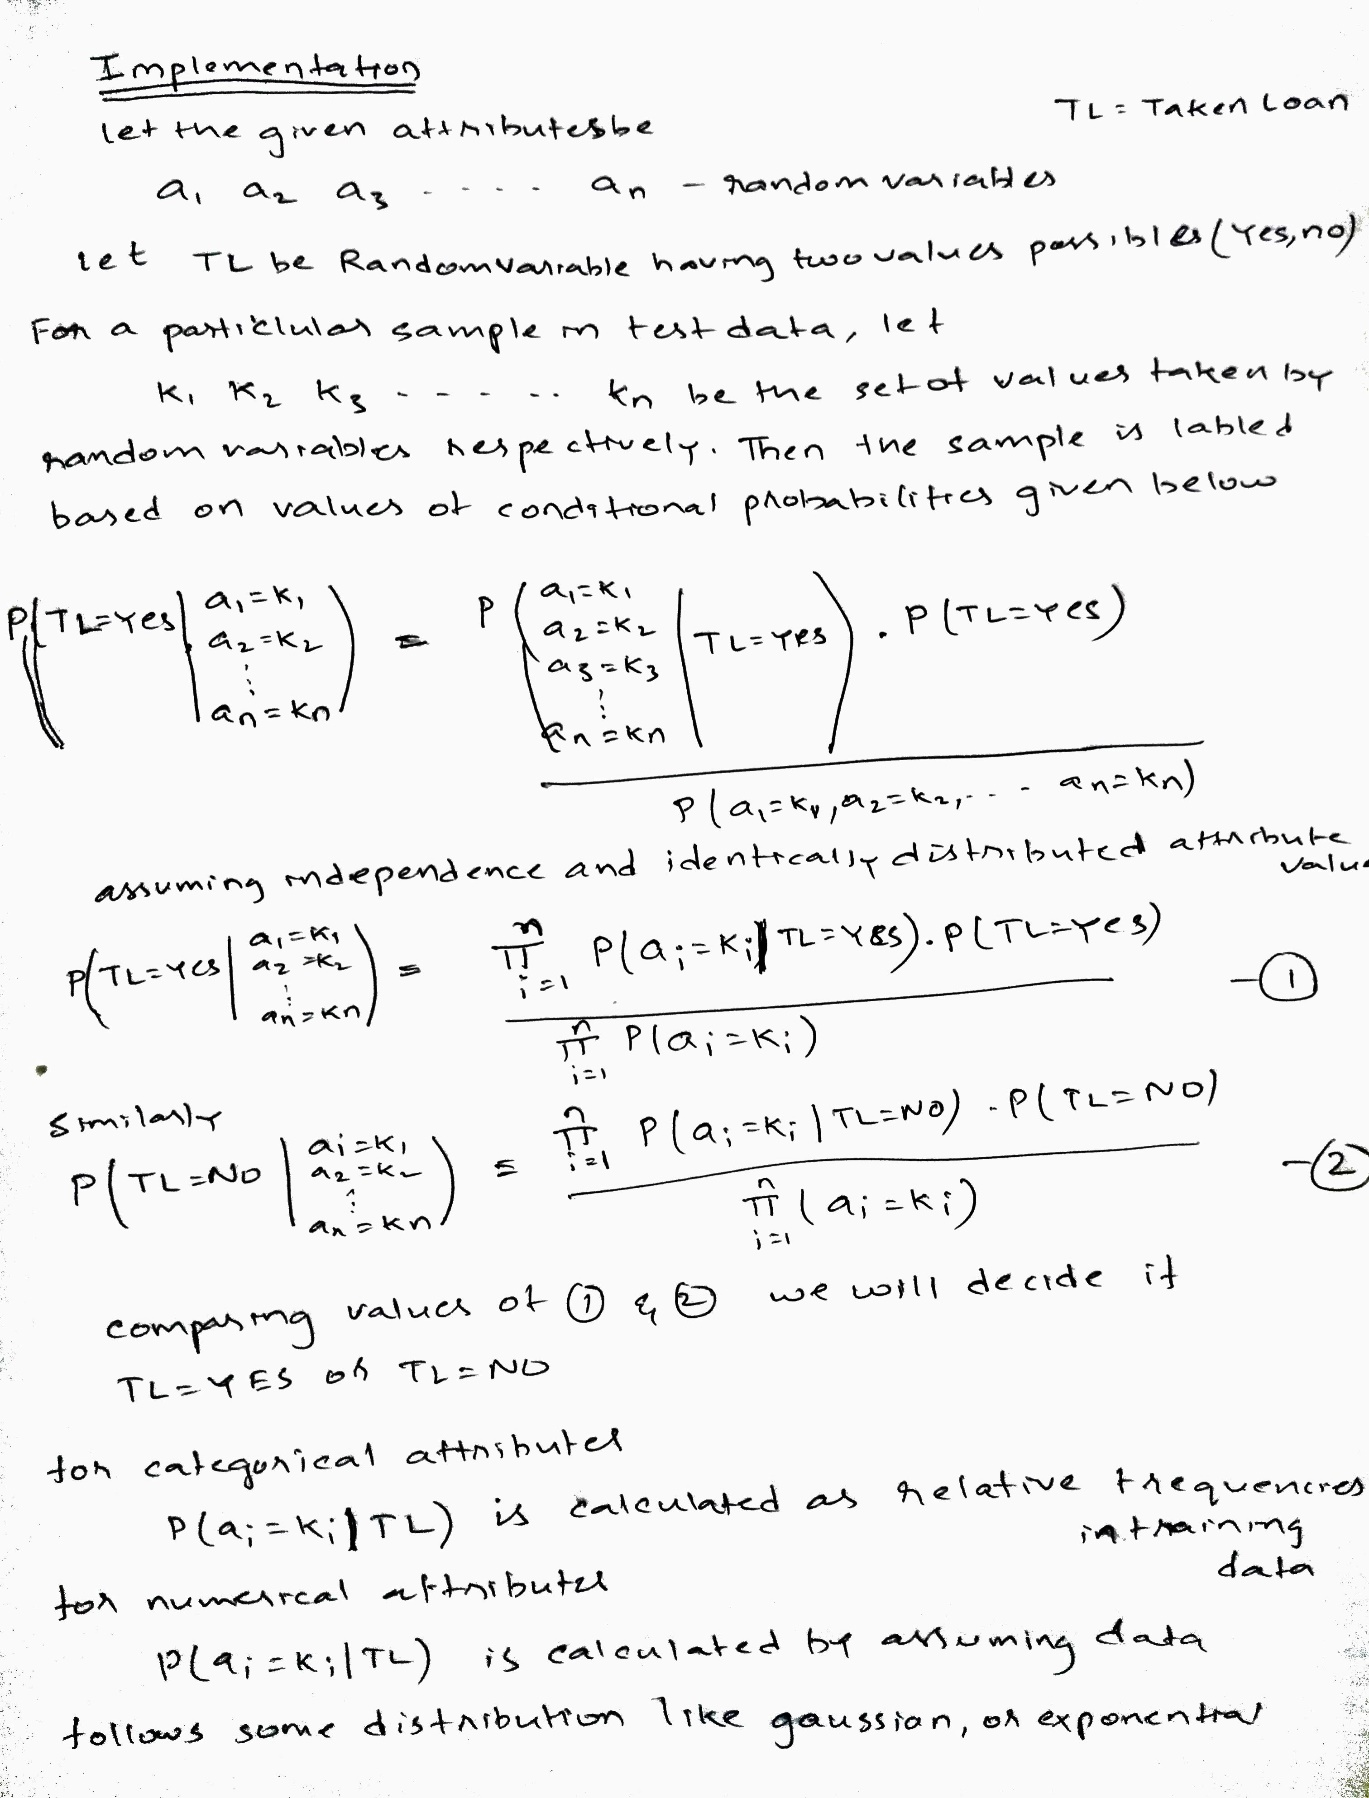 Implementation
TL = Taken Loan
let the given attributes be
a₁ a₂ a₃ . - - - . aₙ - random variables
let TL be Random variable having two values possibles (Yes, no)
For a particlular sample in test data, let
K₁ K₂ K₃ - - - - .. Kₙ be the set of values taken by
random variables respectively. Then the sample is labled
based on values of conditional probabilities given below
P(TL=Yes | a₁=K₁, a₂=K₂ ⋮ aₙ=Kₙ) = P(a₁=K₁ a₂=K₂ a₃=K₃ ⋮ aₙ=Kₙ | TL=Yes) . P(TL=Yes)
P(a₁=K₁, a₂=K₂, - . . - aₙ=Kₙ)
assuming independence and identically distributed attribute
value
P(TL=Yes | a₁=K₁ a₂=K₂ ⋮ aₙ=Kₙ) = ∏ⁿᵢ₌₁ P(aᵢ=Kᵢ | TL=YES). P(TL=Yes) - ①
∏ⁿᵢ₌₁ P(aᵢ=Kᵢ)
Similarly
P(TL=NO | aᵢ=K₁ a₂=K₂ ⋮ aₙ=Kₙ) = ∏ⁿᵢ₌₁ P(aᵢ=Kᵢ | TL=NO) . P(TL=NO) - ②
∏ⁿᵢ₌₁ (aᵢ=Kᵢ)
comparing values of ① & ② we will decide if
TL=YES or TL=NO
for categorical attributes
P(aᵢ=Kᵢ | TL) is calculated as relative frequencies
in training
data
for numerical attributes
P(aᵢ=Kᵢ | TL) is calculated by assuming data
follows some distribution like gaussian, or exponential